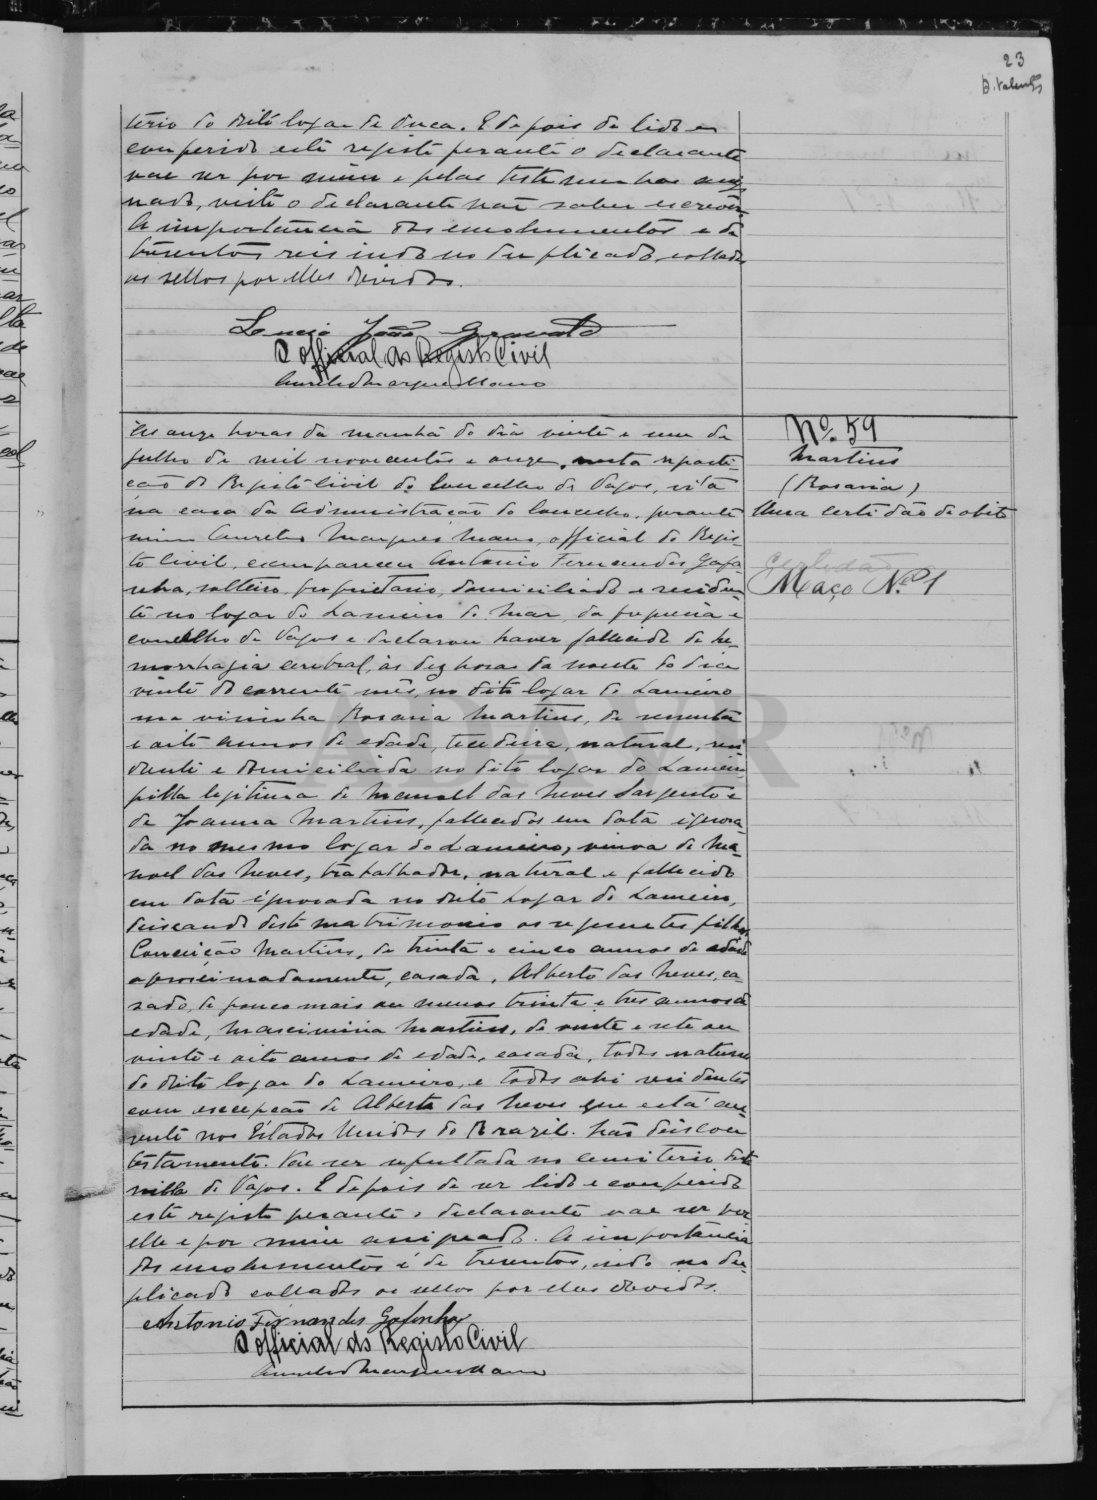 23
D. Valente
terio do dito logar de Ouca. E depois de lido e
conferido este registo perante o declarante
vae ser por mim e pelas testemunhas assig
nado, visto o declarante não saber escrever.
A importancia dos emolumentos é de
tresentos reis indo no duplicado collados
os sellos por elles devidos.
Lucio João Gravato
O official do Registo Civil
Aurelio Marques Mano
Ás onze horas da manhã do dia vinte e um de
julho de mil novecentos e onze, nesta reparti-
ção do Registo Civil do Concelho de Vagos, sita
na casa da Administração do Concelho, perante
mim Aurelio Marques Mano, official do Regis-
to Civil, compareceu Antonio Fernandes Gafa-
nha, solteiro, proprietario, domiciliado e residen-
te no logar do Lameiro do Mar, da freguesia e
concelho de Vagos e declarou haver fallecido de he-
morrhagia cerebral, ás dez horas da noute do dia
vinte do corrente mês, no dito logar do Lameiro
uma visinha Rosaria Martins, de sessenta
e oito annos de edade, tecedeira, natural, resi
dente e domiciliada no dito logar do Lameiro,
filha legitima de Manoel das Neves Sargento e
de Joanna Martins, fallecidos em data ignora-
da no mesmo logar do Lameiro, viuva de Ma-
noel das Neves, trabalhador, natural e fallecido
em data ignorada no dito logar do Lameiro,
deixando deste matrimonio os seguintes filhos:
Conceição Martins, de trinta e cinco annos de edade
aproximadamente, casada, Alberto das Neves, ca-
sado, de pouco mais ou menos trinta e tres annos de
edade, Maximina Martins, de vinte e sete ou
vinte e oito annos de edade, casada, todos naturaes
do dito logar do Lameiro, e todos ahi residentes
com excepção de Alberto das Neves que está au-
sente nos Estados Unidos do Brazil. Não deixou
testamento. Vae ser sepultada no cemiterio desta
villa de Vagos. E depois de ser lido e conferido
este registo perante o declarante vae ser por
elle e por mim assignado. A importancia
dos emolumentos é de tresentos, indo no du-
plicado collados os sellos por elles devidos.
Antonio Fernandes Gafanha
O official do Registo Civil
Aurelio Marques Mano
Nº 59
Martins
(Rosaria)
Uma certidão de obito
Certidão
Maço Nº 1
ADAVR